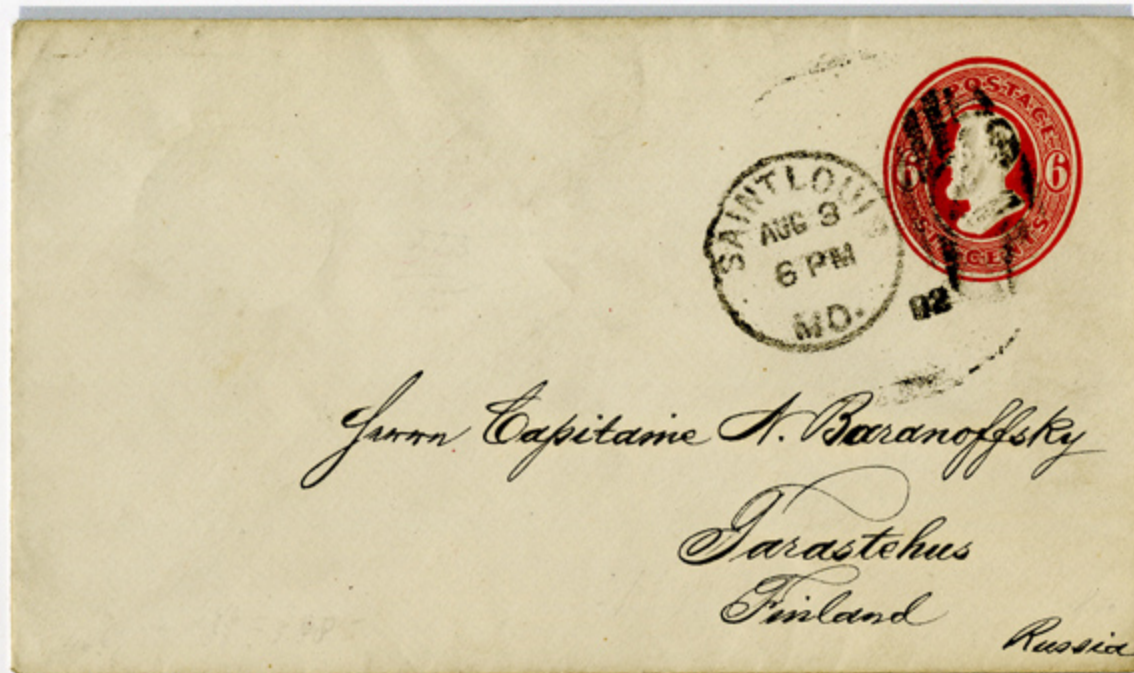 POSTAGE
6 6
SIX CENTS
SAINT LOUIS
AUG 3
6 PM
MO.
92
Herrn Capitaine N. Baranoffsky
Tarastehus
Finland
Russia